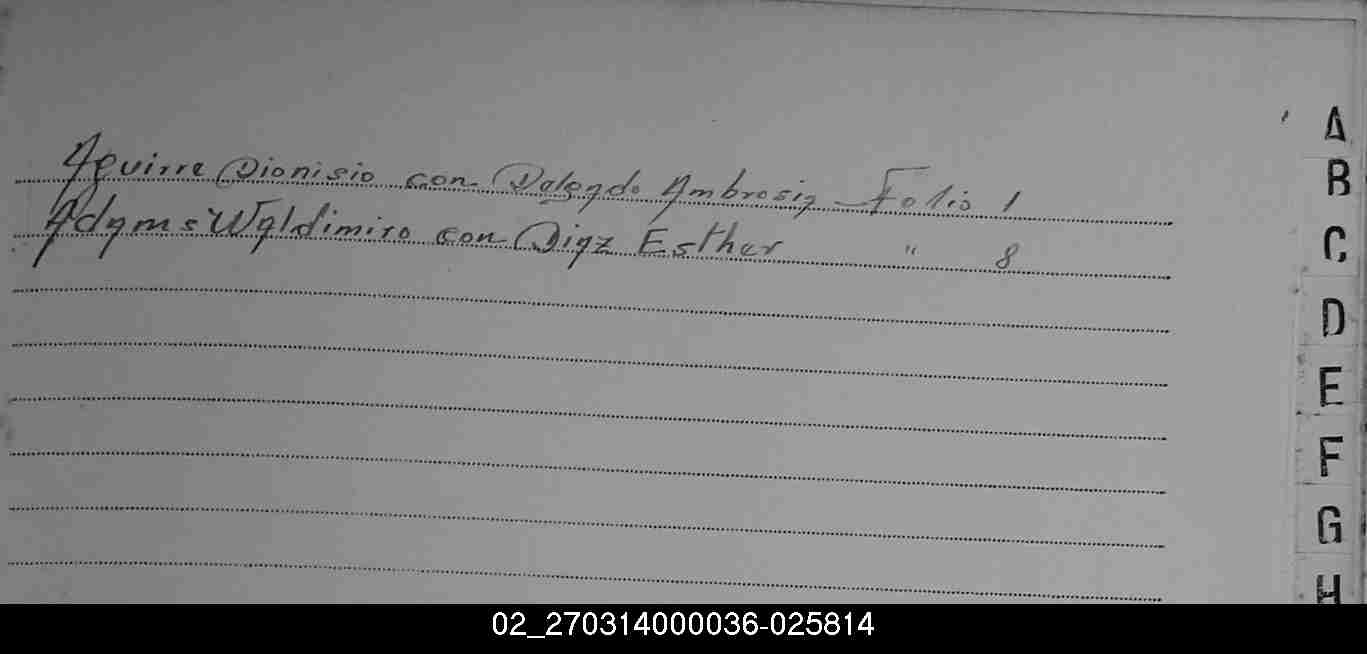 Aguirre Dionisio con Dalgado Ambrosia Folio 1
Adams Waldimiro con Diaz Esther " 8
A
B
C
D
E
F
G
H
02_270314000036-025814